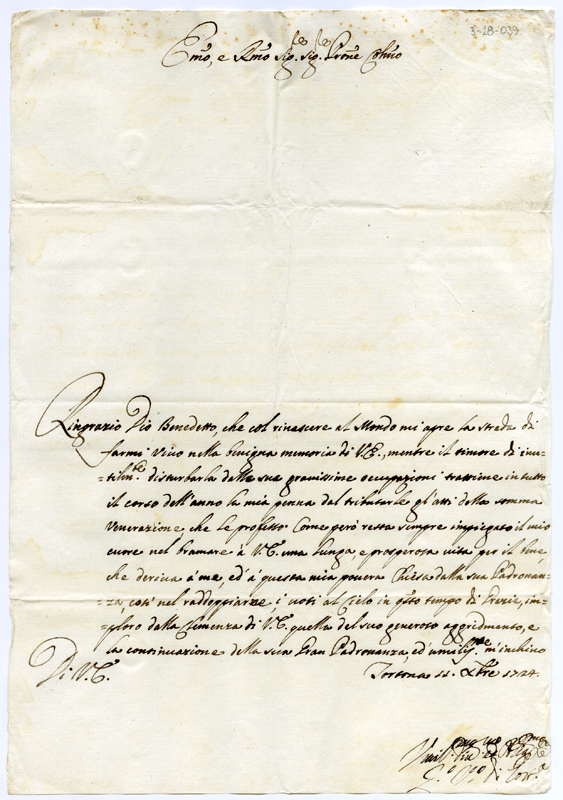 3-18-039
Emo, e Rmo Sig. Sig. Prone Colmo
Ringrazio Dio Benedetto, che col rinascere al Mondo mi apre la strada di
farmi vivo nella benigna memoria di V.E., mentre il timore di inu-
=tilmte disturbarla dalle sue gravissime occupazioni trattiene in tutto
il corso dell'anno la mia penna dal tributarle gl'atti della somma
venerazione, che le professo. Come però resta sempre impiegato il mio
cuore nel bramare à V.E. una lunga, e prosperosa vita per il bene,
che deriva à me, ed' à questa mia povera Chiesa dalla sua Padronan-
=za, così nel raddoppiarne i voti al Cielo in qsto tempo di Grazie, im-
=ploro dalla Clemenza di V.E. quella del suo generoso aggradimento, e
la continuazione della sua Gran Padronanza, ed' umilmte m'inchino
Di V.E.
Tortona 11. Xbre 1724.